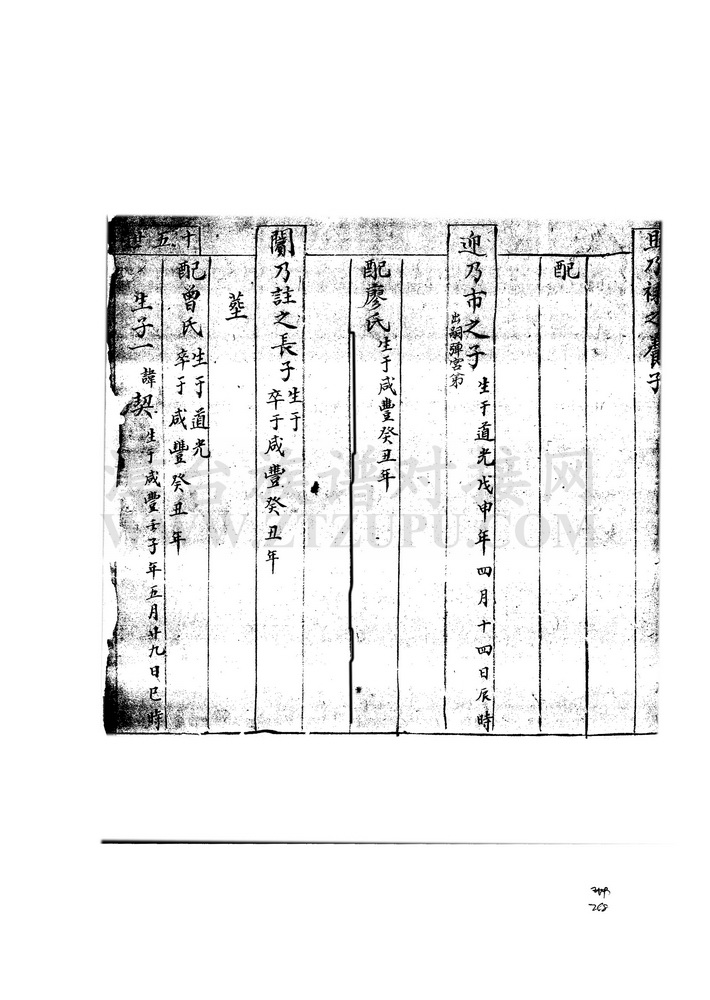 且乃祿之養子
配
迎乃市之子 生于道光戊申年四月十四日辰時
出嗣彈宮第
配廖氏 生于咸豐癸丑年
蘭乃註之長子 生于
卒于咸豐癸丑年
塟
配曾氏 生于道光
卒于咸豐癸丑年
生子一 諱契 生于咸豐壬子年五月廿九日巳時
十五世
漳台族谱对接网
WWW.ZTZUPU.COM
268